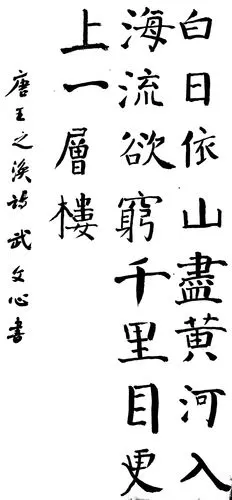 白日依山盡黄河入
海流欲窮千里目更
上一層樓
唐王之渙诗武文心書